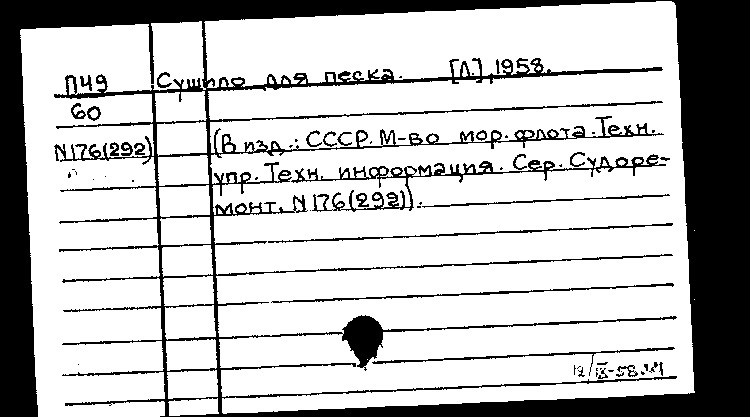 П49 Сушило для песка. [Л.], 1958.
60
N176(292) (В изд.: СССР. М-во мор. флота. Техн.
упр. Техн. информация. Сер. Судоре-
монт. N176(292)).
12/IX-58